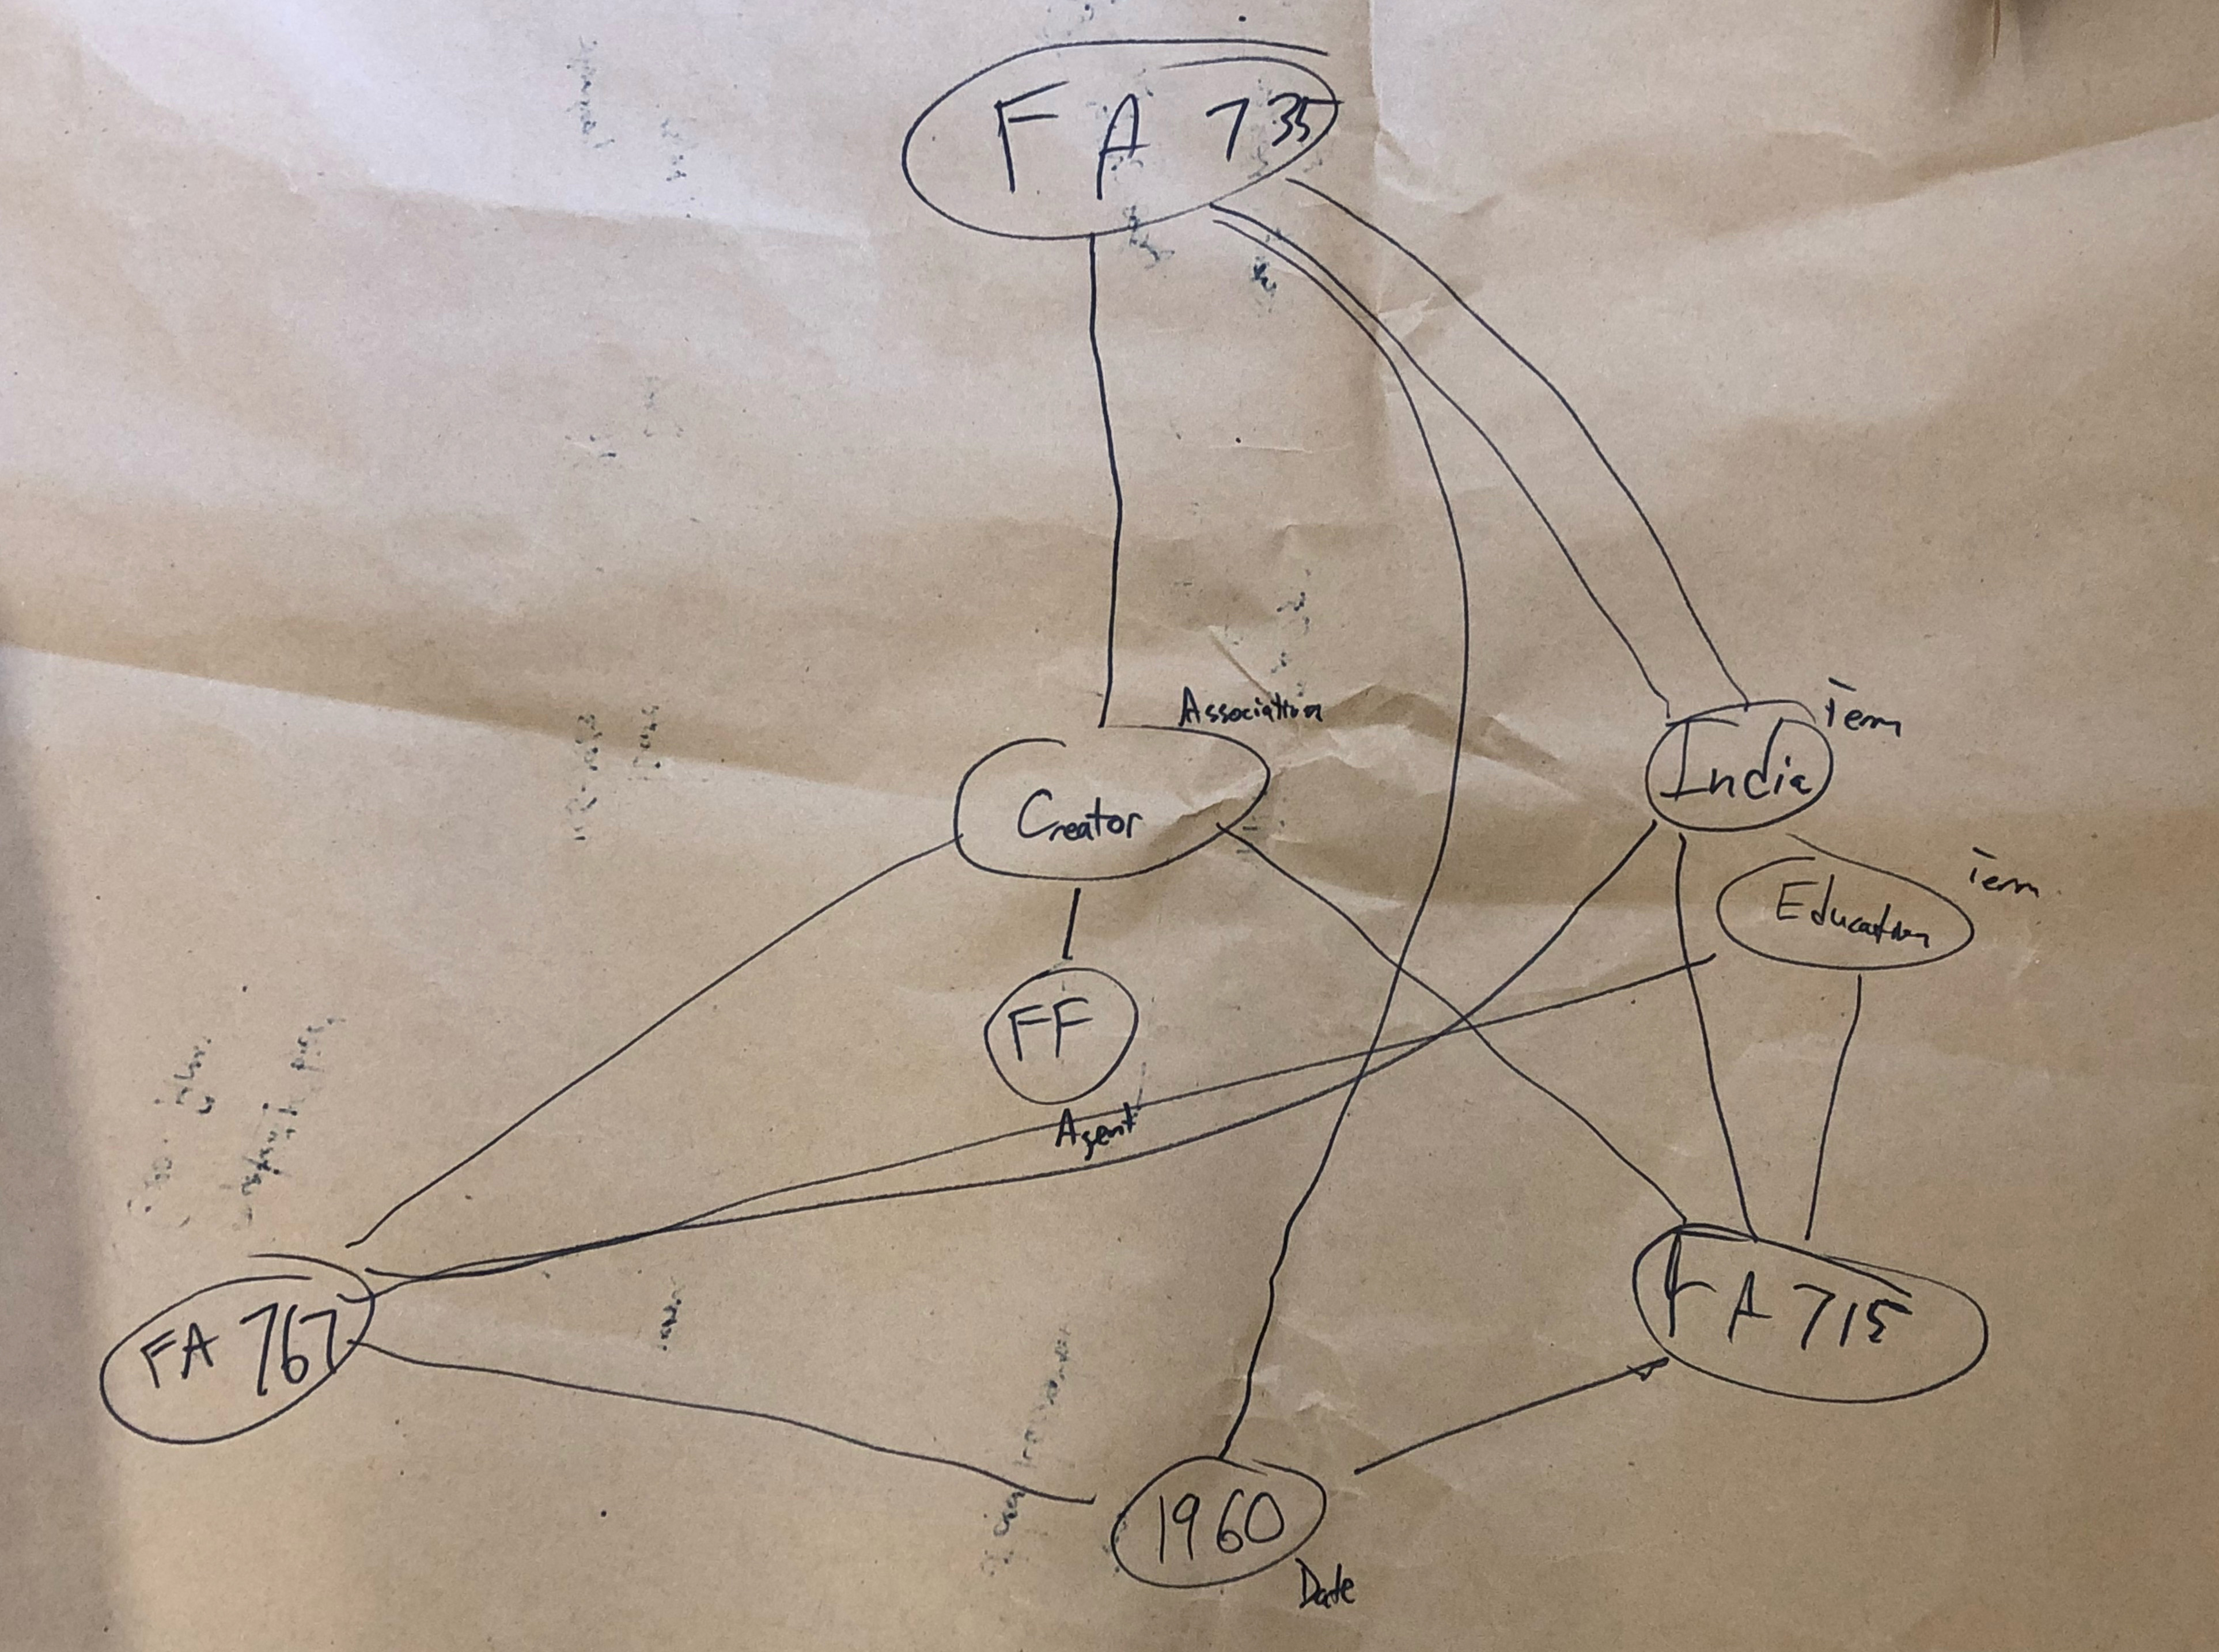 FA 735
Association
Creator
Term
India
Term
Education
FF
Agent
FA 767
FA 715
1960
Date